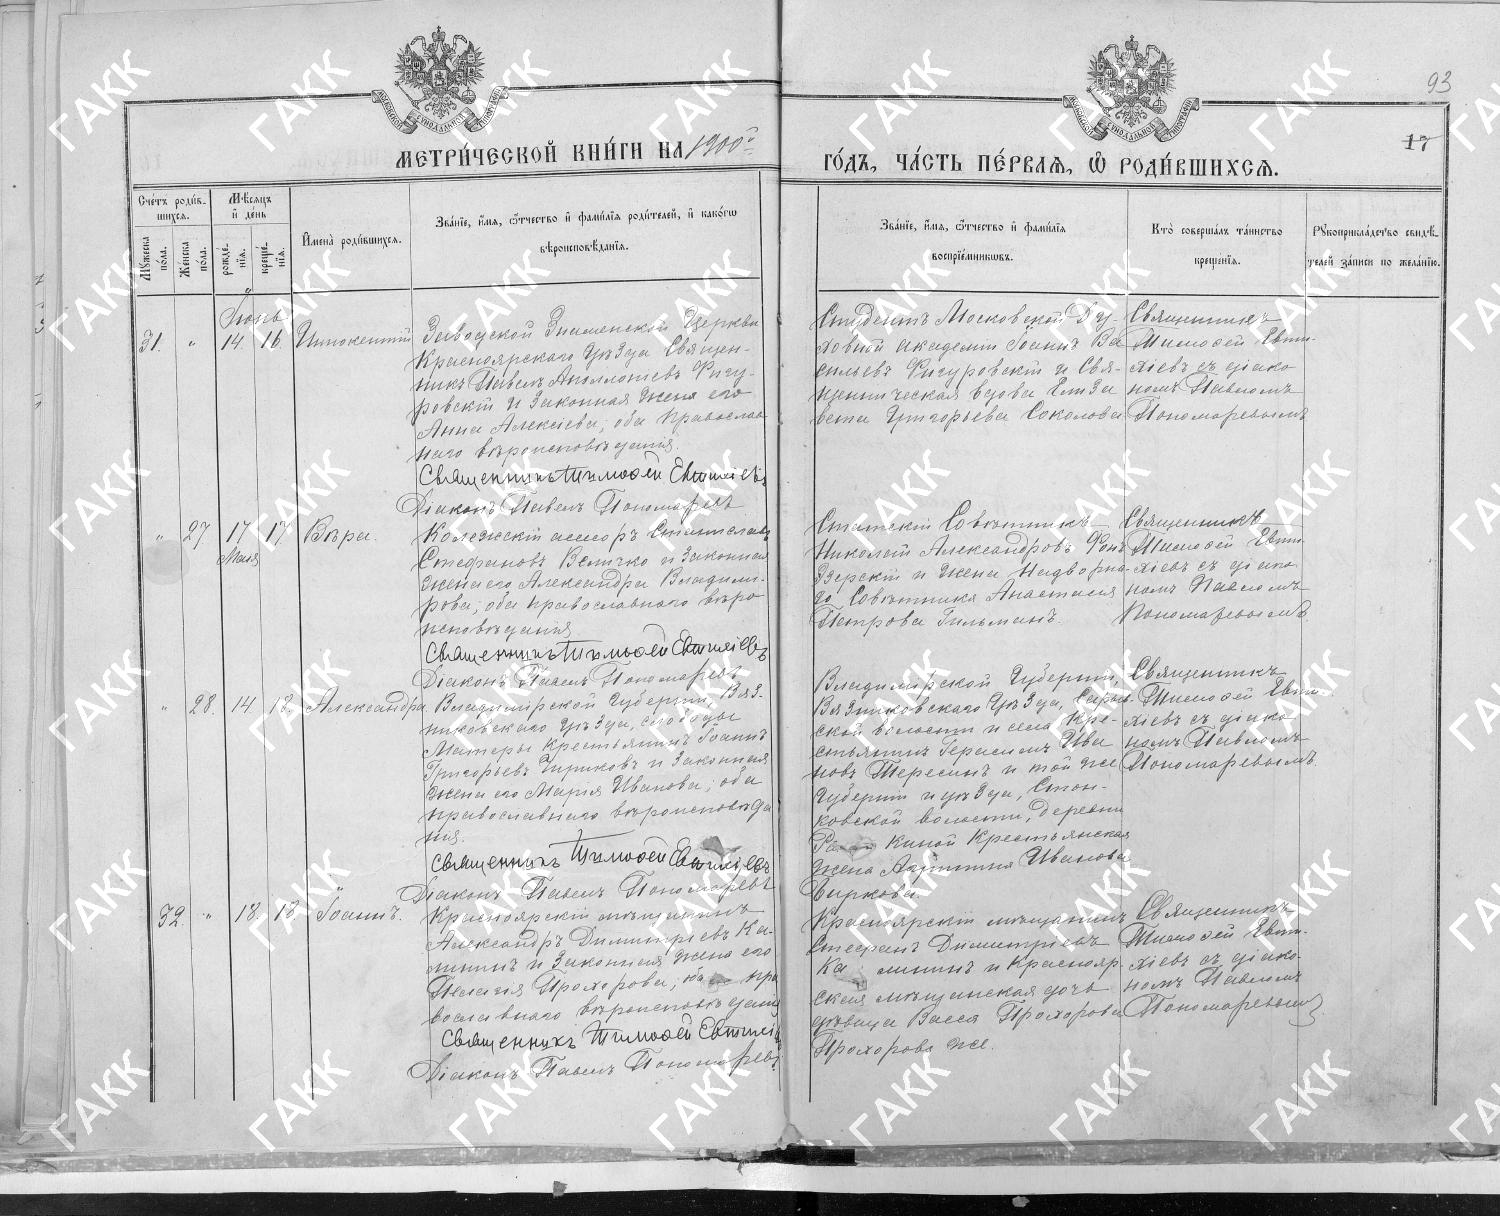 93
17
МЕТРИ́ЧЕСКОЙ КНИ́ГИ НА 1900й
ГО́ДЪ, ЧА́СТЬ ПЕ́РВАЯ, Ѡ РОДИ́ВШИХСЯ.
Сче́тъ роди́в-
шихся.
Мѣ́сяцъ
и҆ де́нь
Мꙋжеска по́ла.
Же́нска по́ла.
рожде́-нїя.
креще́-нїя.
И҆мена̀ роди́вшихся.
Зва́нїе, и҆́мя, ѻ҆́тчество и҆ фами́лїя роди́телей, и҆ како́гѡ
вѣроисповѣ́данїя.
Зва́нїе, и҆́мя, ѻ҆́тчество и҆ фами́лїя
воспрїе́мникѡвъ.
Кто̀ соверша́лъ та́инство
креще́нїя.
Рꙋкоприкла́дство свидѣ́-
телей за́писи по жела́нїю.
Іюнь
31. " 14. 16. Иннокентій
Заводской Знаменской Церкви
Красноярскаго уѣзда Священ-
никъ Павелъ Аполлоніевъ Фигу-
ровскій и законная жена его
Анна Алексіева, оба православ
наго вѣроисповѣданія.
Священникъ Тимофей Евтихіевъ
Діаконъ Павелъ Пономаревъ
Студентъ Московской Ду-
ховной Академіи Іоаннъ Ва
сильевъ Фигуровскій и Свя-
щенническая вдова Елиза
вета Григорьева Соколова
Священникъ
Тимофей Евти-
хіевъ съ діако
номъ Павломъ
Пономаревымъ
" 27 17 17 Вѣра.
Мая
Колежскій ассесоръ Станиславъ
Стефановъ Величко и законная
жена его Александра Владими-
рова, оба православнаго вѣро
исповѣданія
Священникъ Тимофей Евтихіевъ
Діаконъ Павелъ Пономаревъ
Статскій Совѣтникъ
Николай Александровъ Фонъ
Зерскій и жена Надворна-
го Совѣтника Анастасія
Петрова Гильманъ.
Священникъ
Тимофей Евти-
хіевъ съ діако-
номъ Павломъ
Пономаревымъ
" 28. 14 18. Александра.
Владимірской губерніи, Вяз-
никовскаго уѣзда, слободы
Мстеры крестьянинъ Іоаннъ
Григорьевъ Чириковъ и законная
жена его Марія Иванова, оба
православнаго вѣроисповѣда
нія.
Священникъ Тимофей Евтихіевъ
Діаконъ Павелъ Пономаревъ
Владимірской губерніи,
Вязниковскаго уѣзда, Сарыев
ской волости и села кре-
стьянинъ Герасимъ Ива
новъ Тересинъ и той же
губерніи и уѣзда, Стан-
ковской волости, деревни
киной крестьянская
жена Иванова
Биркова.
Священникъ
Тимофей Евти-
хіевъ съ діако-
номъ Павломъ
Пономаревымъ.
32 " 18. 18. Іоаннъ.
Красноярскій мѣщанинъ
Александръ Димитріевъ Ка-
лининъ и законная жена его
Пелагія Прохорова, оба пра
вославнаго вѣроисповѣданія
Священникъ Тимофей Евтихіевъ
Діаконъ Павелъ Пономаревъ
Красноярскій мѣщанинъ
Стефанъ Димитріевъ
Калининъ и Краснояр-
ская мѣщанская дочь
дѣвица Васса Прохорова
Прохорова же.
Священникъ
Тимофей Евти-
хіевъ съ діако-
номъ Павломъ
Пономаревымъ